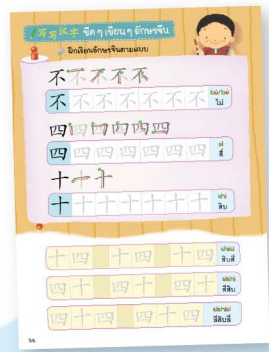 写写汉字 ขีด ๆ เขียน ๆ อักษรจีน
ฝึกเขียนอักษรจีนตามแบบ
不
不 不 不 不 不 不 不 bù/bú ไม่
四
四 四 四 四 四 四 四 sì สี่
十
十 十 十 十 十 十 十 shí สิบ
十四 十四 十四 shísì สิบสี่
四十 四十 四十 sìshí สี่สิบ
四十四 四十四 sìshísì สี่สิบสี่